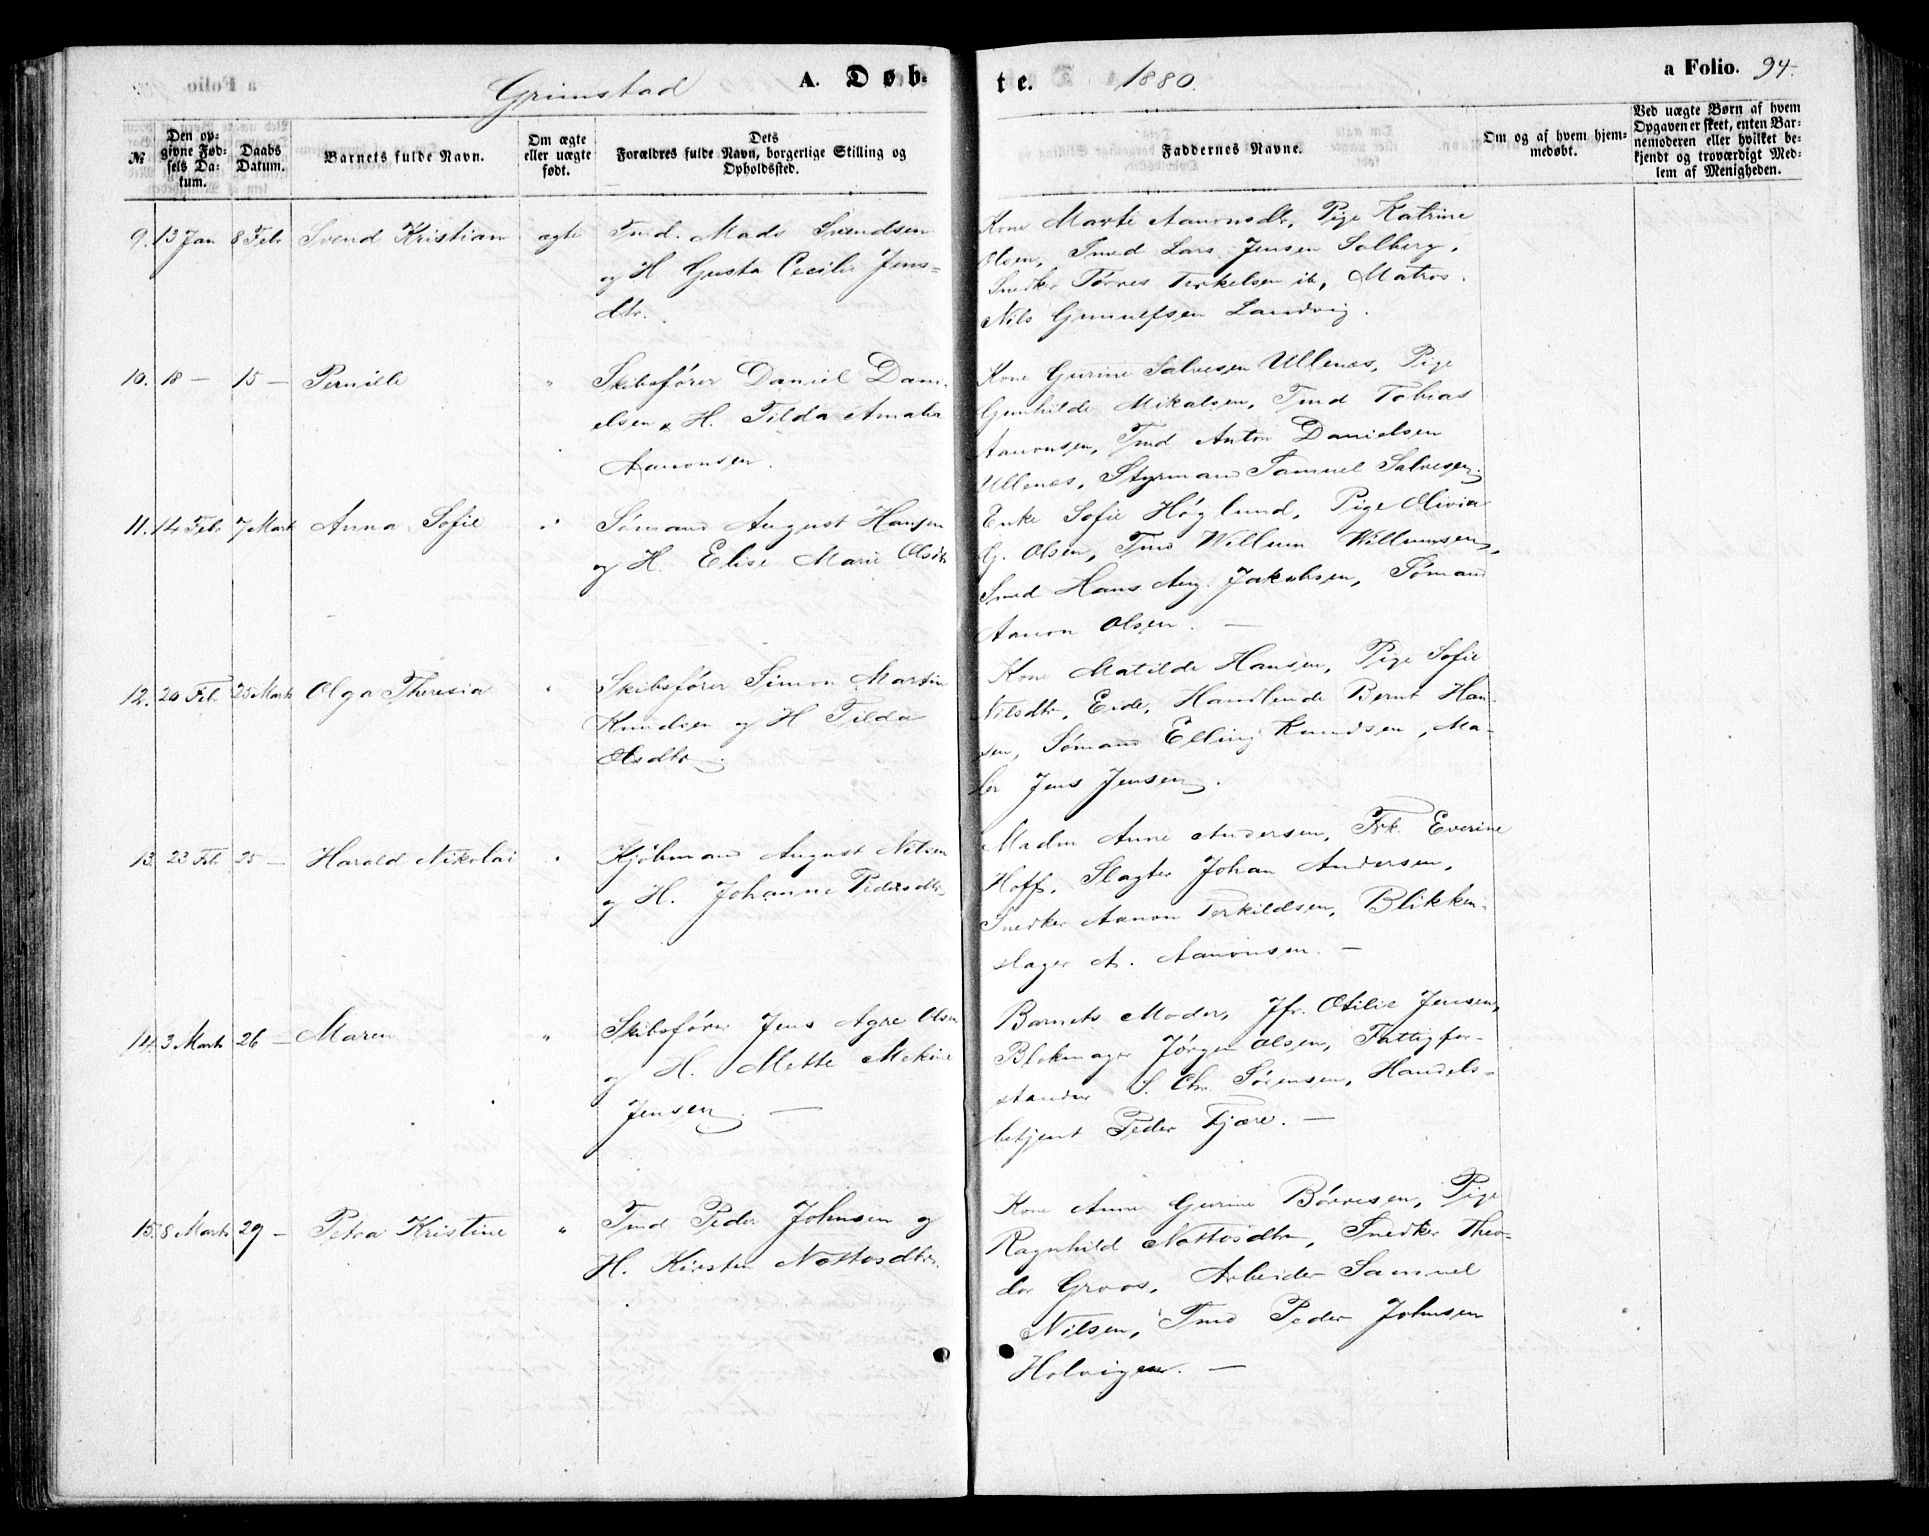 Grimstad
A. Døb-
te. 1880.
a Folio. 94.
№
Den op-
givne Fød-
sels Da-
tum.
Daabs
Datum.
Barnets fulde Navn.
Om ægte
eller uægte
født.
Dets
Forældres fulde Navn, borgerlige Stilling og
Opholdssted.
Faddernes Navne.
Om og af hvem hjem-
medøbt.
Ved uægte Børn af hvem
Opgaven er skeet, enten Bar-
nemoderen eller hvilket be-
kjendt og troværdigt Med-
lem af Menigheden.
9. 13 Jan 8 Febr Svend Kristian ægte Tmd. Mads Svendsen
og H Gusta Cecilie Jens-
dtr.
Kone Marte Aanonsdtr, Pige Katrine
Olsen, Tmd Lars Jensen Solberg,
Snedker Tørres Terkelsen ib, Matros
Nils Gunulfsen Landvig.
10. 18 — 15 — Pernille " Skibsfører Daniel Dani-
elsen & H. Tilda Amalia
Aanonsen.
Kone Gurine Salvesen Ullenæs, Pige
Gunhilde Mikalsen, Tmd Tobias
Aanonsen, Tmd Anton Danielsen
Ullenæs, Styrmand Samuel Salvesen.
11. 14 Febr 7 Marts Anna Sofie " Sømand August Hansen
og H. Elise Marie Olsdtr
Enke Sofie Høglund, Pige Olivia
G. Olsen, Tmd Willum Willumsen,
Smed Hans Aug. Jakobsen, Sømand
Aanon Olsen. —
12. 20 Feb. 25 Marts Olga Theresia " Skibsfører Simon Martin
Knudsen og H Tilda
Olsdtr.
Kone Matilde Hansen, Pige Sofie
Nilsdtr, Eide, Handlende Bernt Han-
sen, Sømand Elling Knudsen, Ma-
ler Jens Jensen.
13. 23 Feb 25 — Harald Nikolai " Kjøbmand August Nilsen
og H. Johanne Pedersdtr
Madm Anne Andersen, Frk. Everine
Hoff, Slagter Johan Andersen,
Snedker Aanon Terkildsen, Blikken-
slager A. Aanonsen. —
14. 3 Marts 26 — Maren " Skibsfører Jens Agre Olsen
og H. Mette Mekine
Jensen. —
Barnets Moder, Jfr. Otilie Jensen,
Blokmager Jørgen Olsen, Fattigfor-
stander S. Chr Sørensen, Handels-
betjent Peder Fjære. —
15. 8 Marts 29 — Petra Kristine " Tmd Peder Johnsen og
H. Kirsten Nottosdtr.
Kone Anne Gurine Børresen, Pige
Ragnhild Nottosdtr, Snedker Theo-
dor Groos, Arbeider Samuel
Nilsen, Tmd Peder Johnsen
Holvigen. —